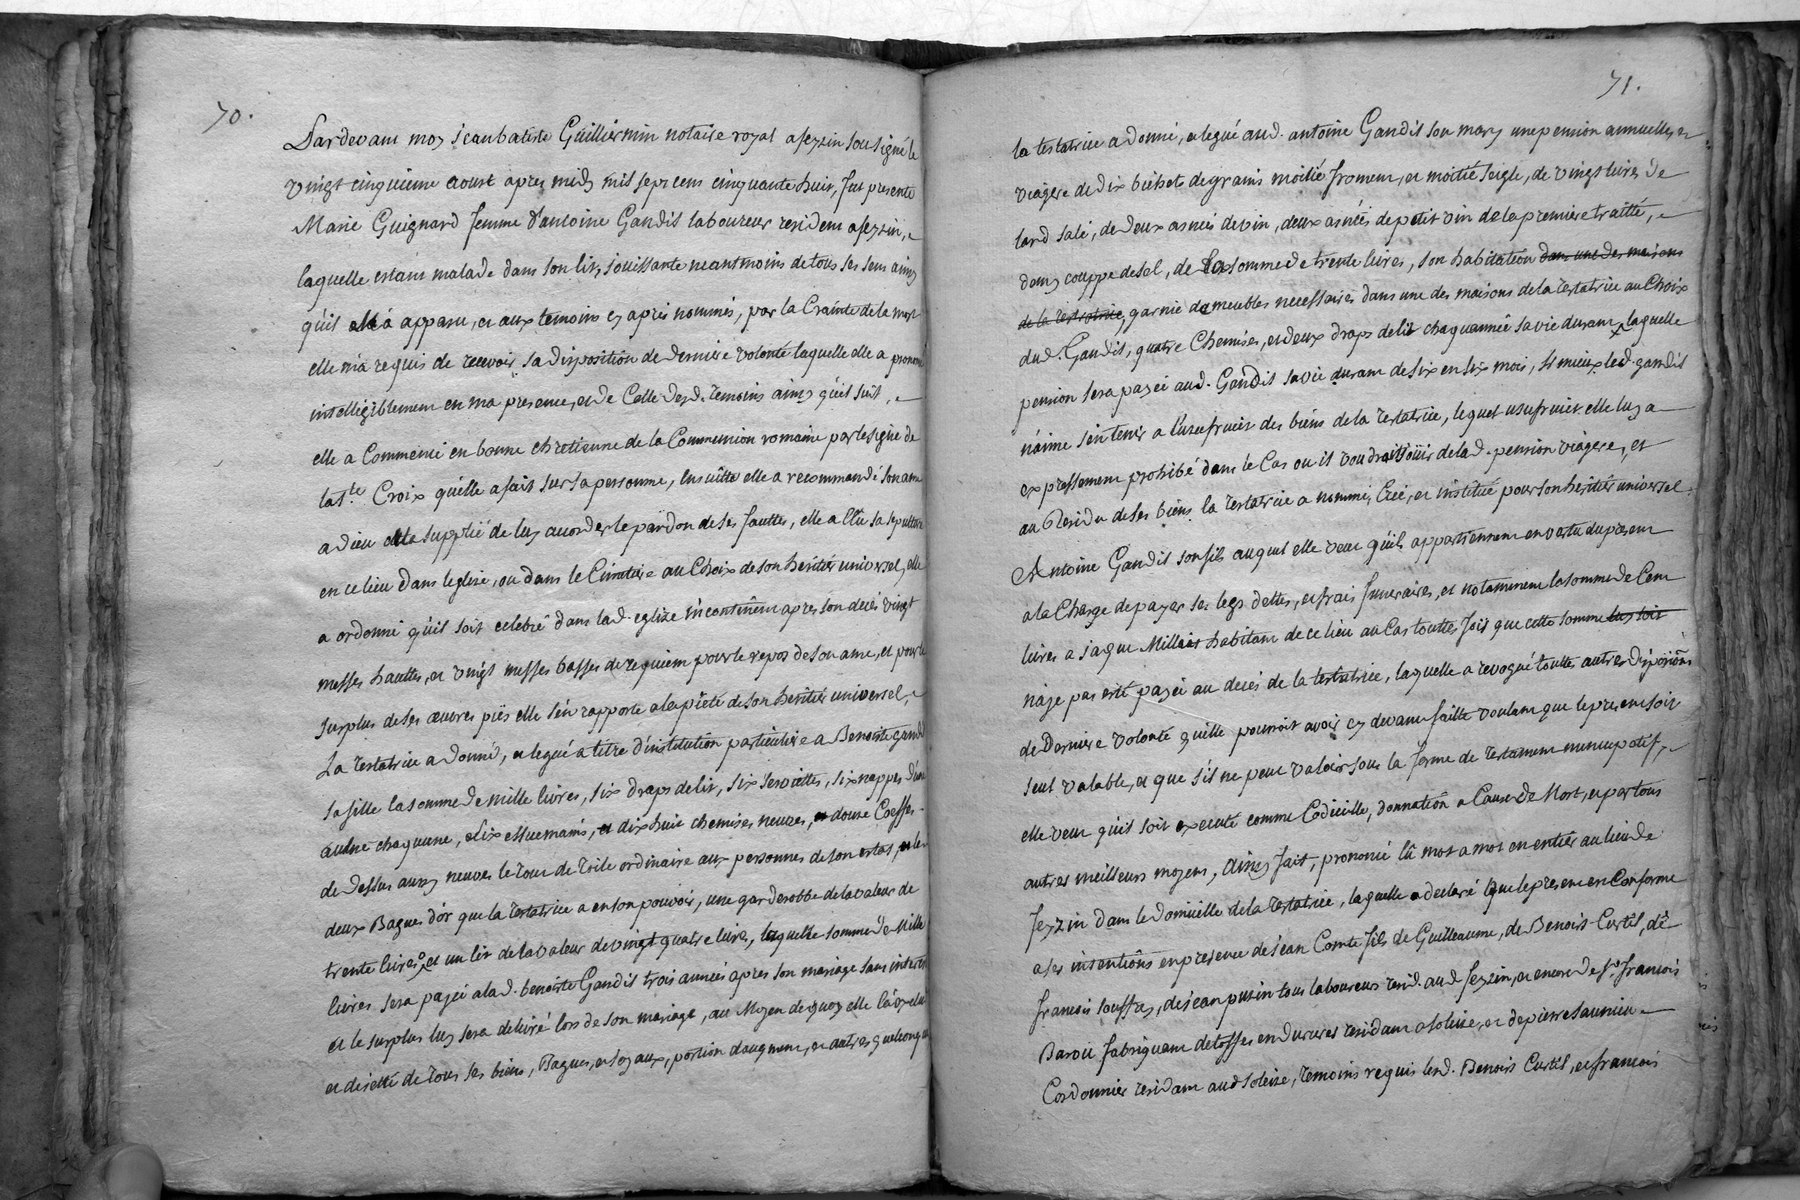 70.
Pardevant moy jean batiste Guilliermin notaire royal a seyzin sousigné le
vingt cinquieme aoust apres midy mil sept cens cinquante huit, fut presente
Marie Guignard femme d'antoine Gandit laboureur resident a seyzin,
laquelle estant malade dans son lit, jouissante neantmoins de tous ses sens ainsy
qu'il m'a apparu, et aux temoins cy apres nommés, par la Crainte de la mort
elle m'a requis de recevoir sa disposition de derniere volonté laquelle elle a prononcé
intelligiblement en ma presence, et de Celle desd. temoins ainsy qu'il suit,
elle a Commencé en bonne chretienne de la Communion romaine par le signe de
la Ste Croix qu'elle a fait sur sa personne, ensuitte elle a recommandé son ame
a dieu et l'a supplié de luy accorder le pardon de ses fauttes, elle a Elû sa sepulture
en ce lieu dans leglise, ou dans le Cimetiere au Choix de son heritier universel, elle
a ordonné qu'il soit celebré dans lad. eglize incontinent apres son decés vingt
messes hauttes, et vingt messes basses de requiem pour le repos de son ame, et pour le
surplus de ses œuvres piës elle s'en rapporte a la piété de son heritier universel,
La testatrice a donné, et legué a titre d'institution particuliere a Benoiste gandit
sa fille la somme de mille livres, six draps de lit, six serviettes, six nappes d'une
aulne chaqueune, six essuemains, et dix huit chemises neuves, et douze Coeffes
de dessus aussy neuves le tout de toile ordinaire aux personnes de son estat, et les
deux Bague d'or que la testatrice a en son pouvoir, une garderobbe de la valeur de
trente livres, et un lit de la valeur de vingt quatre livres, laquelle somme de Mille
livres sera payéé a lad. benoiste Gandit trois années apres son mariage sans interets
et le surplus luy sera delivré lors de son mariage, au Moyen de quoy elle l'a exclue
et dejetté de tous ses biens, Bagues, et joyaux, portion d'augment, et autres quelconques
71.
la testatrice a donné, et legué aud. antoine Gandit son mary une pension annuelle, et
viagere de dix bichets de grains moitié froment, et moitié seigle, de vingt livres de
lard salé, de deux asnéés de vin, deux asnéés de petit vin de la premiere traitté,
demy couppe de sel, de la somme de trente livres, son habitation dans une des maisons
de la testatrice, garnie de meubles necessaires dans une des maisons de la testatrice au Choix
dud. Gandit, quatre Chemises, et deux draps de lit chaqu'année sa vie durant, laquelle
pension sera payéé aud. Gandit sa vie durant de six en six mois, si mieux led. gandit
n'aime s'en tenir a l'usufruit des biens de la testatrice, lequel usufruit elle luy a
expressement prohibé dans le Cas ou il voudrait jouir de lad. pension viagere, et
au Residu de ses biens la testatrice a nommé, Créé, et institué pour son heritier universel
Antoine Gandit son fils auquel elle veut qu'ils appartiennent en vertu du present
a la Charge de payer ses legs dettes, et frais funeraires, et notamment la somme de Cent
livres a jaque Milliat habitant de ce lieu au Cas touttes fois que cette somme luy soit
n'aje pas esté payéé au decés de la testatrice, laquelle a revoqué touttes autres dispositions
de Derniere volonté qu'elle pourroit avoir cy devant faitte voulant que le present soit
seul valable, et que s'il ne peut valoir sous la forme de testament nuncupatif,
elle veut qu'il soit executé comme Codicille, donnation a Cause de Mort, et par tous
autres meilleurs moyens, Ainsy fait, prononcé lû mot a mot en entier au lieu de
seyzin dans le domicille de la testatrice, laquelle a declaré que le present est Conforme
a ses intentions en presence de jean Comte fils de Guilleaume, de Benoist Curtil, de
francois jouffrey, de jean puzin tous laboureurs resid. aud seyzin, et encore de sr. francois
Baroü fabriquant detoffes en dorures residant a soleize, et de pierre saunier
Cordonnier residant aud soleize, temoins requis lesd. Benoist Curtil, et francois